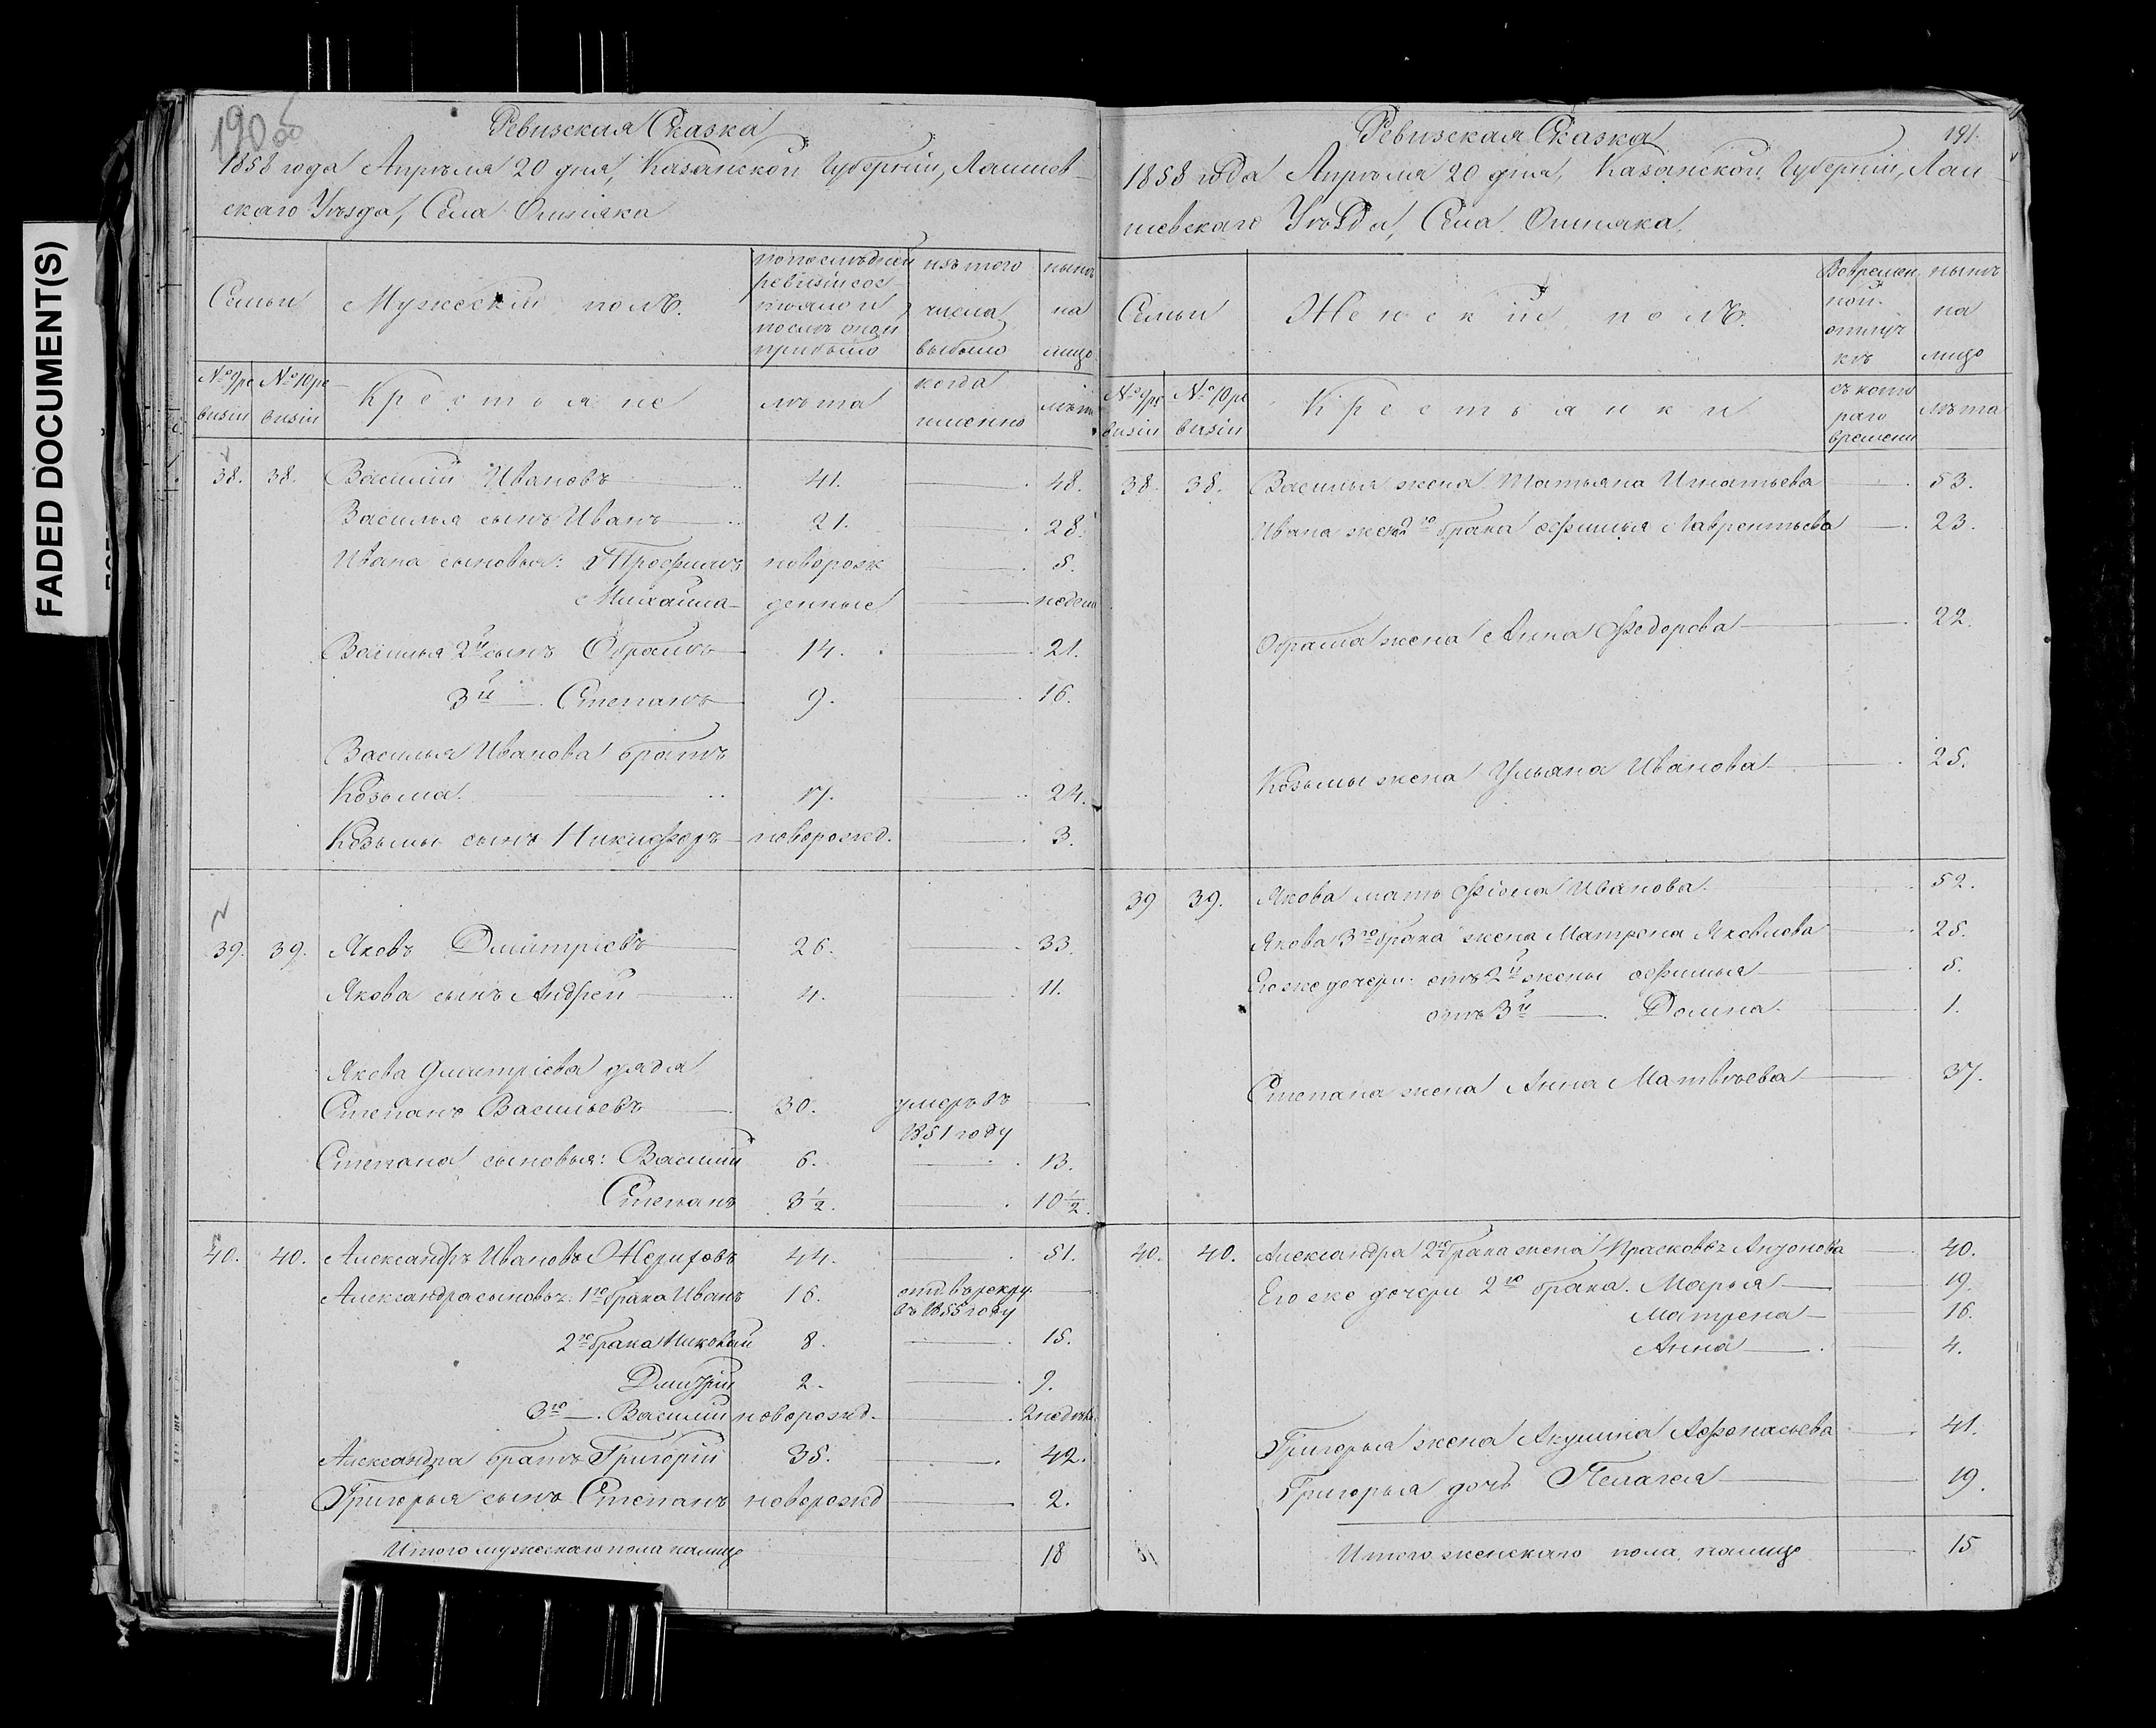 FADED DOCUMENT(S)
190
Ревизская Сказка
1858 года Апрѣля 20 дня, Казанской Губерніи, Лаишев-
скаго Уѣзда, Села Ошняка
Семьи
Мужескій полъ.
по послѣдней ревизіи состояло и послѣ оной прибыло
изъ того числа выбыло
нынѣ на лицо
№ 9 ревизіи
№ 10 ревизіи
Крестьяне
лѣта
когда именно
лѣта
38. 38. Василій Ивановъ 41. 48.
Василья сынъ Иванъ 21. 28.
Ивана сыновья: Трофимъ новорож 5.
Михайла денные недели
Василья 2й сынъ Обрамъ 14. 21.
3й — Степанъ 9. 16.
Василья Иванова братъ
Козьма. 17. 24.
Козьмы сынъ Никифоръ новорожд. 3.
39. 39. Яковъ Дмитріевъ 26. 33.
Якова сынъ Андрей 4. 11.
Якова Дмитріева дядя
Степанъ Васильевъ 30. умеръ въ
1851 году
Степана сыновья: Василій 6. 13.
Степанъ 3 1/2. 10 1/2.
40. 40. Александръ Ивановъ 44. 51.
Александра сыновья: 1го брака Иванъ 16. отд. въ рекру.
въ 1855 году
2го брака Николай 8. 15.
Дмитрій 2. 9.
3го —. Василий новорожд. 2 недѣли
Александра братъ Григорій 35. 42.
Григорья сынъ Степанъ новорожд 2.
Итого мужескаго пола налицо 18
Ревизская Сказка
191.
1858 года Апрѣля 20 дня, Казанской Губерніи, Лаи-
шевскаго Уѣзда, Села Ошняка,
Семьи
Женскій полъ.
Во временной отлучкѣ
нынѣ на лицо
№ 9 ре визіи
№ 10 ре визіи
Крестьянки
съ котораго времени
лѣта
38. 38. Василья жена Татьяна Игнатьева 53.
Ивана жена 2го брака Афимья Лаврентьева 23.
Обрама жена Анна Федорова 22.
Козьмы жена Ульяна Иванова 25.
39 39. Якова мать Фіона Иванова. 52.
Якова 3го брака жена Матрена Яковлева 25.
Его же дочери: отъ 2й жены Афимья 5.
отъ 3й —. Домна. 1.
Степана жена Анна Матвѣева 37.
40. 40. Александра 2го брака жена Прасковья Антонова 40.
Его же дочери 2го брака. Марья 19.
Матрена 16.
Анна 4.
Григорья жена Акулина Афонасьева 41.
Григорья дочь Пелагея 19.
Итого женскаго пола, налицо 15